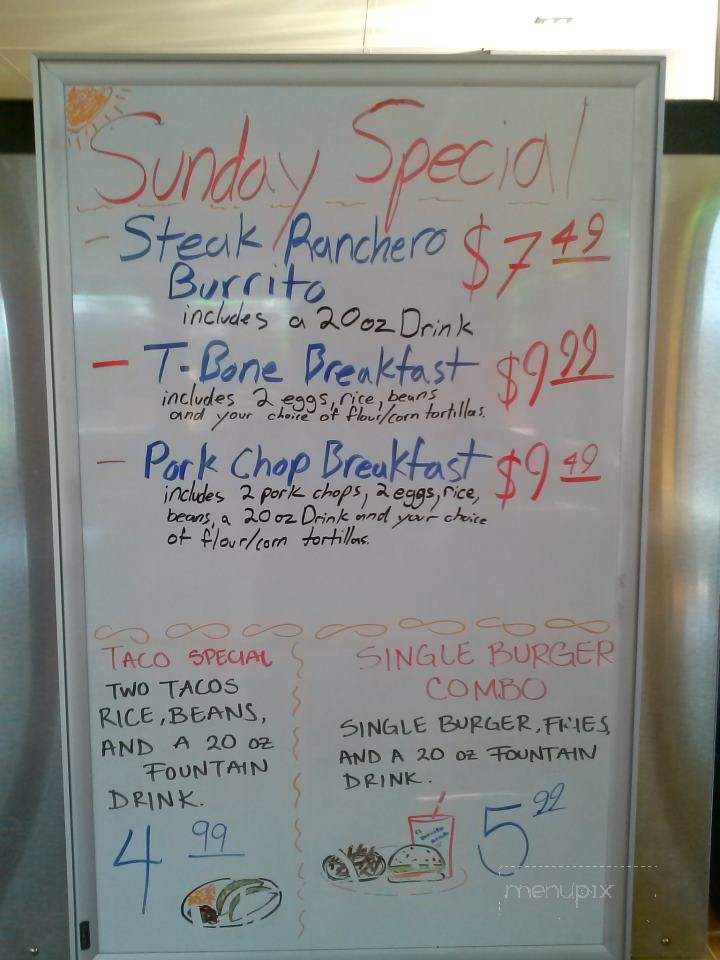 Sunday Special
- Steak Ranchero $7 49
Burrito
includes a 20oz Drink
- T-Bone Breakfast $9 99
includes 2 eggs, rice, beans
and your choice of flour/corn tortillas.
- Pork Chop Breakfast $9 49
includes 2 pork chops, 2 eggs, rice,
beans, a 20oz Drink and your choice
of flour/corn tortillas.
TACO SPECIAL
TWO TACOS
RICE, BEANS,
AND A 20 OZ
FOUNTAIN
DRINK.
4 99
SINGLE BURGER
COMBO
SINGLE BURGER, FRIES,
AND A 20 OZ FOUNTAIN
DRINK.
5 99
menupix